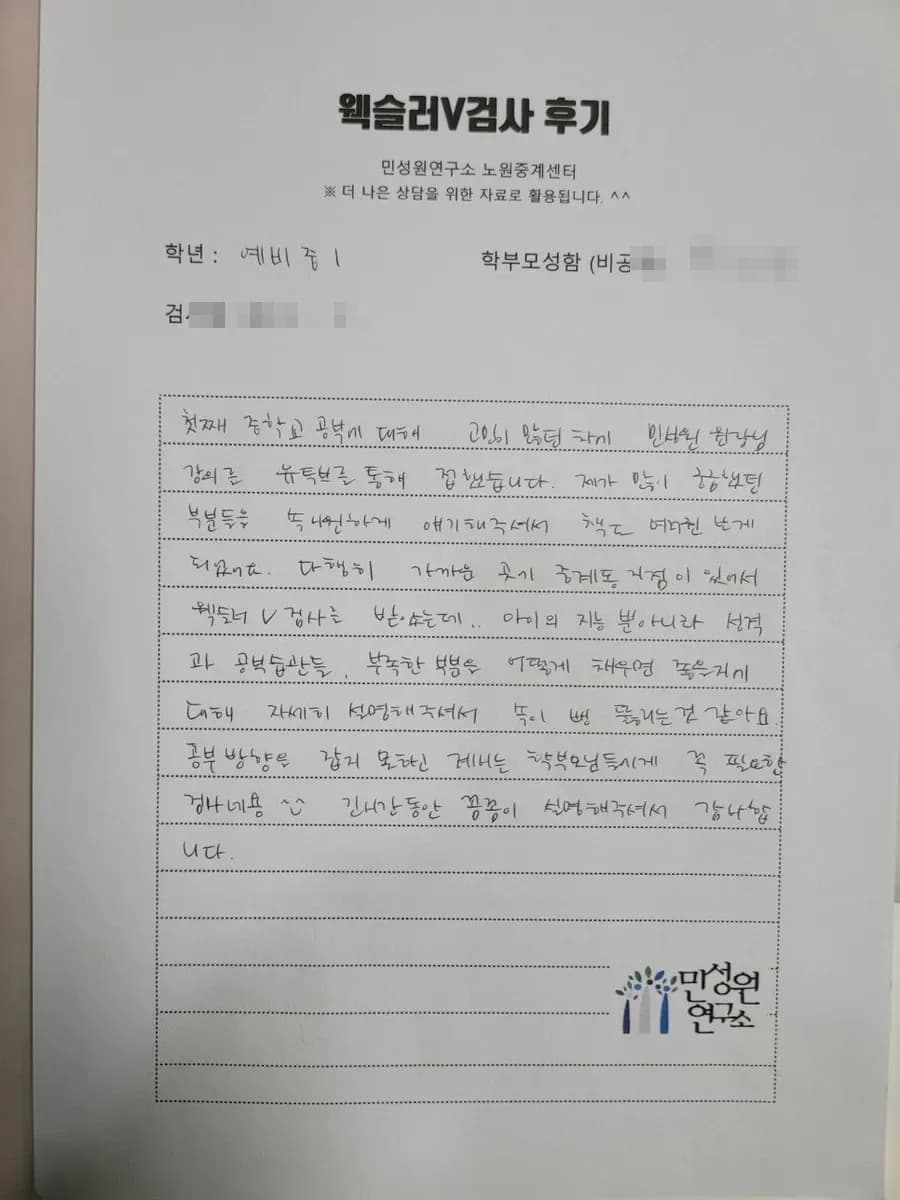 웩슬러V검사 후기
민성원연구소 노원중계센터
※ 더 나은 상담을 위한 자료로 활용됩니다. ^^
학년 : 예비 중 1
학부모성함 (비공
검
첫째 중학교 공부에 대해 고민이 많던 차에 민성원 원장님
강의를 유튜브를 통해 접했습니다. 제가 많이 궁금했던
부분들을 속 시원하게 얘기해주셔서 책도 여러권 보게
되었어요. 다행히 가까운 곳에 중계동 지점이 있어서
웩슬러 V 검사를 받았는데.. 아이의 지능 뿐아니라 성격
과 공부습관들, 부족한 부분은 어떻게 채우면 좋을지에
대해 자세히 설명해주셔서 속이 뻥 뚫리는것 같아요.
공부 방향을 잡지 못하신 계시는 학부모님들에게 꼭 필요한
검사네용 ^^ 긴시간동안 꼼꼼이 설명해주셔서 감사합
니다.
민성원
연구소